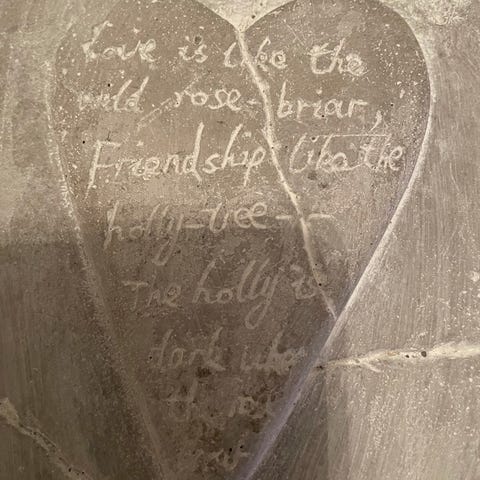 Love is like the
wild rose-briar,
Friendship like the
holly-tree--
The holly is
dark when
the rose